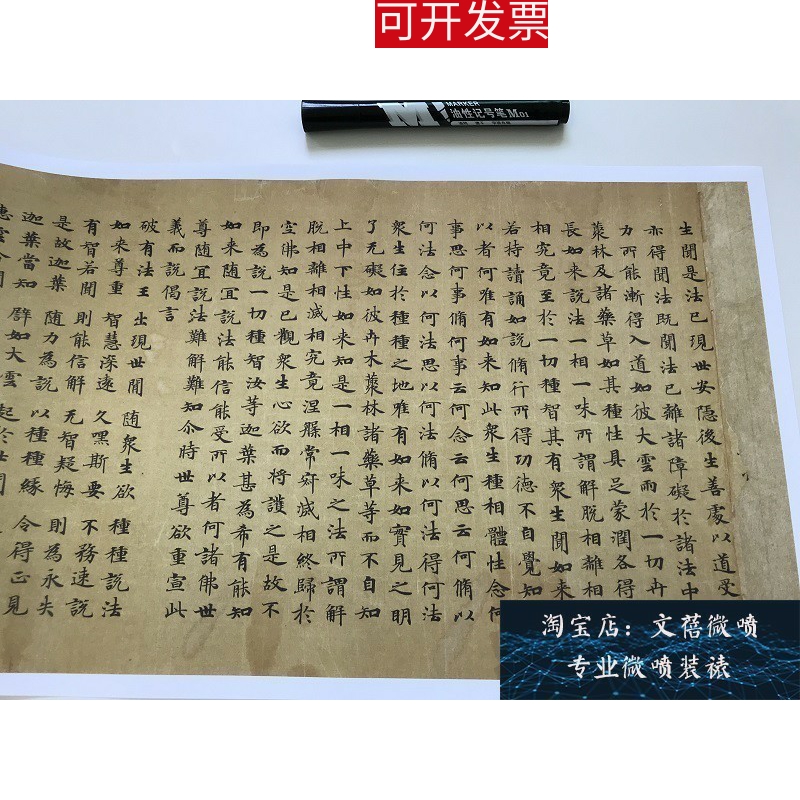 可开发票
MARKER
油性记号笔M01
生聞是法已現世安隱後生善處以道受
亦得聞法既聞法已離諸障礙於諸法中
力所能漸得入道如彼大雲雨於一切卉
藂林及諸藥草如其種性具足蒙潤各得
長如來說法一相一味所謂解脫相離相
相究竟至於一切種智其有衆生聞如來
若持讀誦如說脩行所得功德不自覺知
以者何唯有如來知此衆生種相體性念何
事思何事脩何事云何念云何思云何脩以
何法念以何法思以何法脩以何法得何法
衆生住於種種之地唯有如來如實見之明
了无礙如彼卉木藂林諸藥草等而不自知
上中下性如來知是一相一味之法所謂解
脫相離相滅相究竟涅槃常寂滅相終歸於
空佛知是已觀衆生心欲而將護之是故不
即為說一切種智汝等迦葉甚為希有能知
如來随宜說法能信能受所以者何諸佛世
尊随宜說法難解難知尒時世尊欲重宣此
義而說偈言
破有法王 出現世間 随衆生欲 種種說法
如来尊重 智慧深遠 久嘿斯要 不務速說
有智若聞 則能信解 无智疑悔 則為永失
是故迦葉 随力為說 以種種緣 令得正見
迦葉當知 譬如大雲 起於世間
淘宝店：文蓓微喷
专业微喷装裱